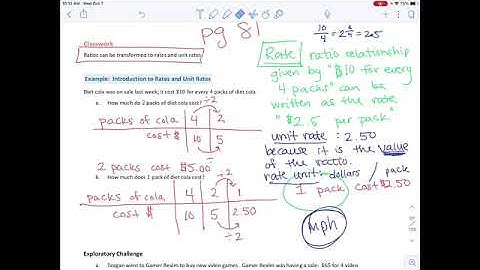 10:13 AM Wed Oct 7
pg 81
Classwork
Ratios can be transformed to rates and unit rates
Example: Introduction to Rates and Unit Rates
Diet cola was on sale last week; it cost $10 for every 4 packs of diet cola.
a. How much do 2 packs of diet cola cost?
÷2
packs of cola 4 2
cost $ 10 5
÷2
2 packs cost $5.00
b. How much does 1 pack of diet cola cost?
packs of cola 4 2 1
cost $ 10 5 2.50
÷2
Exploratory Challenge
a. Teagan went to Gamer Realm to buy new video games. Gamer Realm was having a sale: $65 for 4 video
10/4 = 2 2/4 = 2.5
Rate: ratio relationship
given by "$10 for every
4 packs" can be
written as the rate
"$2.5 per pack"
unit rate: 2.50
because it is the value
of the ratio.
rate unit: dollars / pack
1 pack cost $2.50
mph